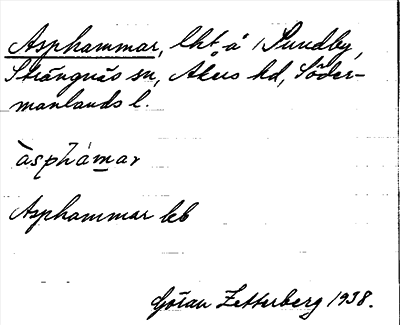 Asphammar, lht å Sundby,
Strängnäs sn, Åkers hd, Söder-
manlands l.
àsphámar
Asphammar kb
Götan Zetterberg 1938.